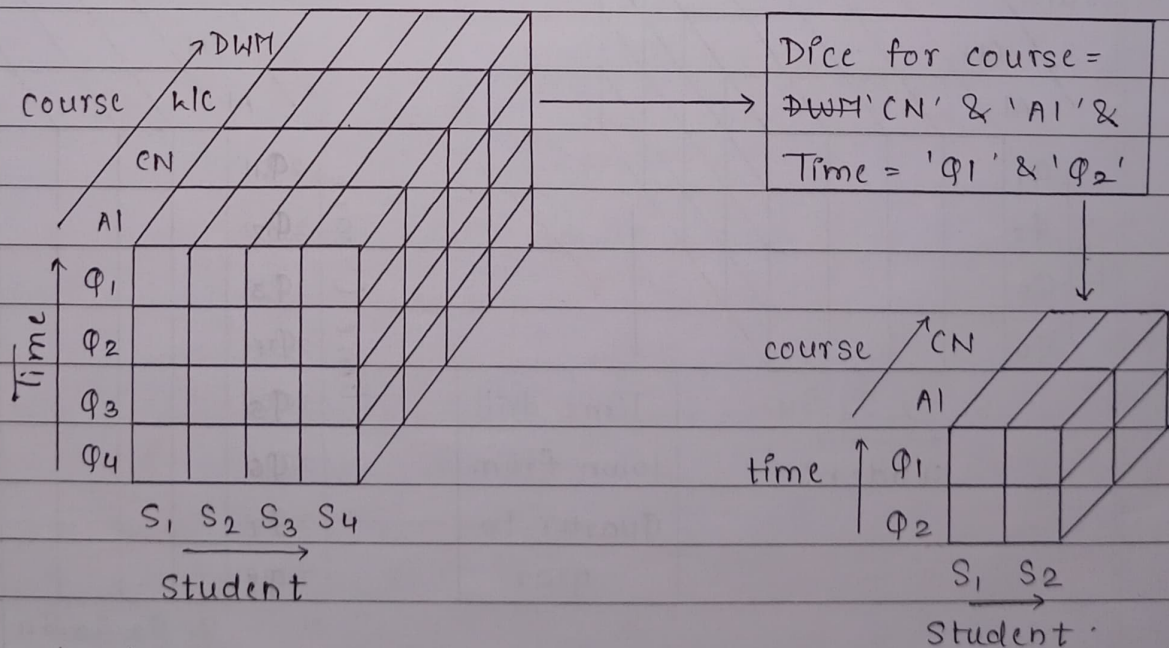 DWM
Course
WC
CN
AI
Time
Q1
Q2
Q3
Q4
S1 S2 S3 S4
Student
Dice for course =
DWM 'CN' & 'AI' &
Time = 'Q1' & 'Q2'
course
CN
AI
time
Q1
Q2
S1 S2
Student.